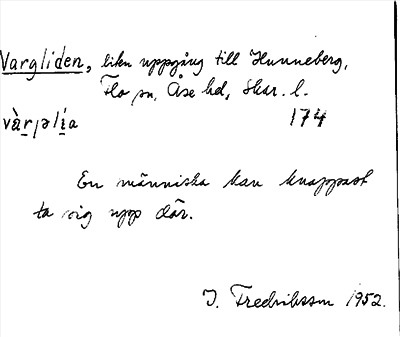 Vargliden, liten uppgång till Hunneberg,
Flo sn, Åse hd, Skar. l.
vàr, əlí̱a 174
En människa kan knappast
ta sig upp där.
J. Fredriksson 1952.